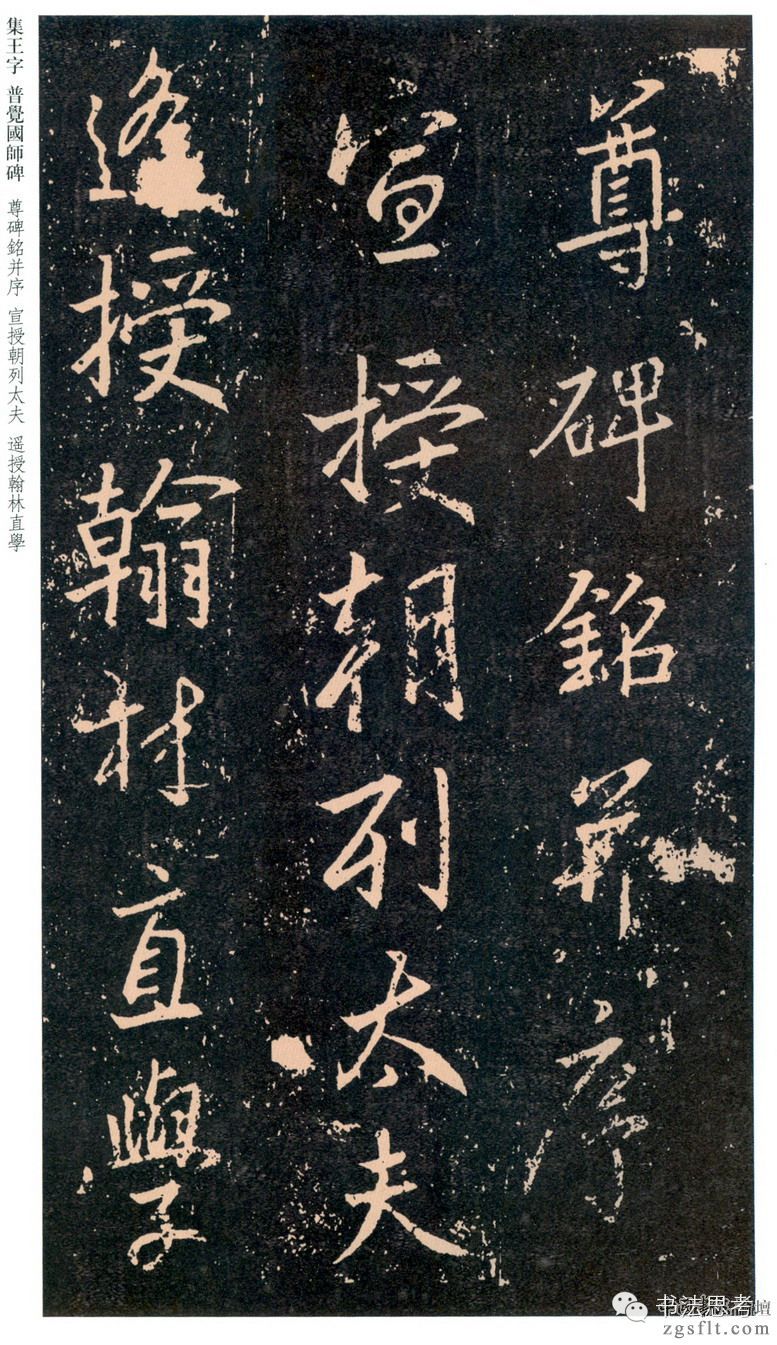 尊碑銘并序
宣授朝列太夫
遥授翰林直學
集王字 普覺國師碑 尊碑銘并序 宣授朝列太夫 遥授翰林直學
书法思考
zgsflt.com